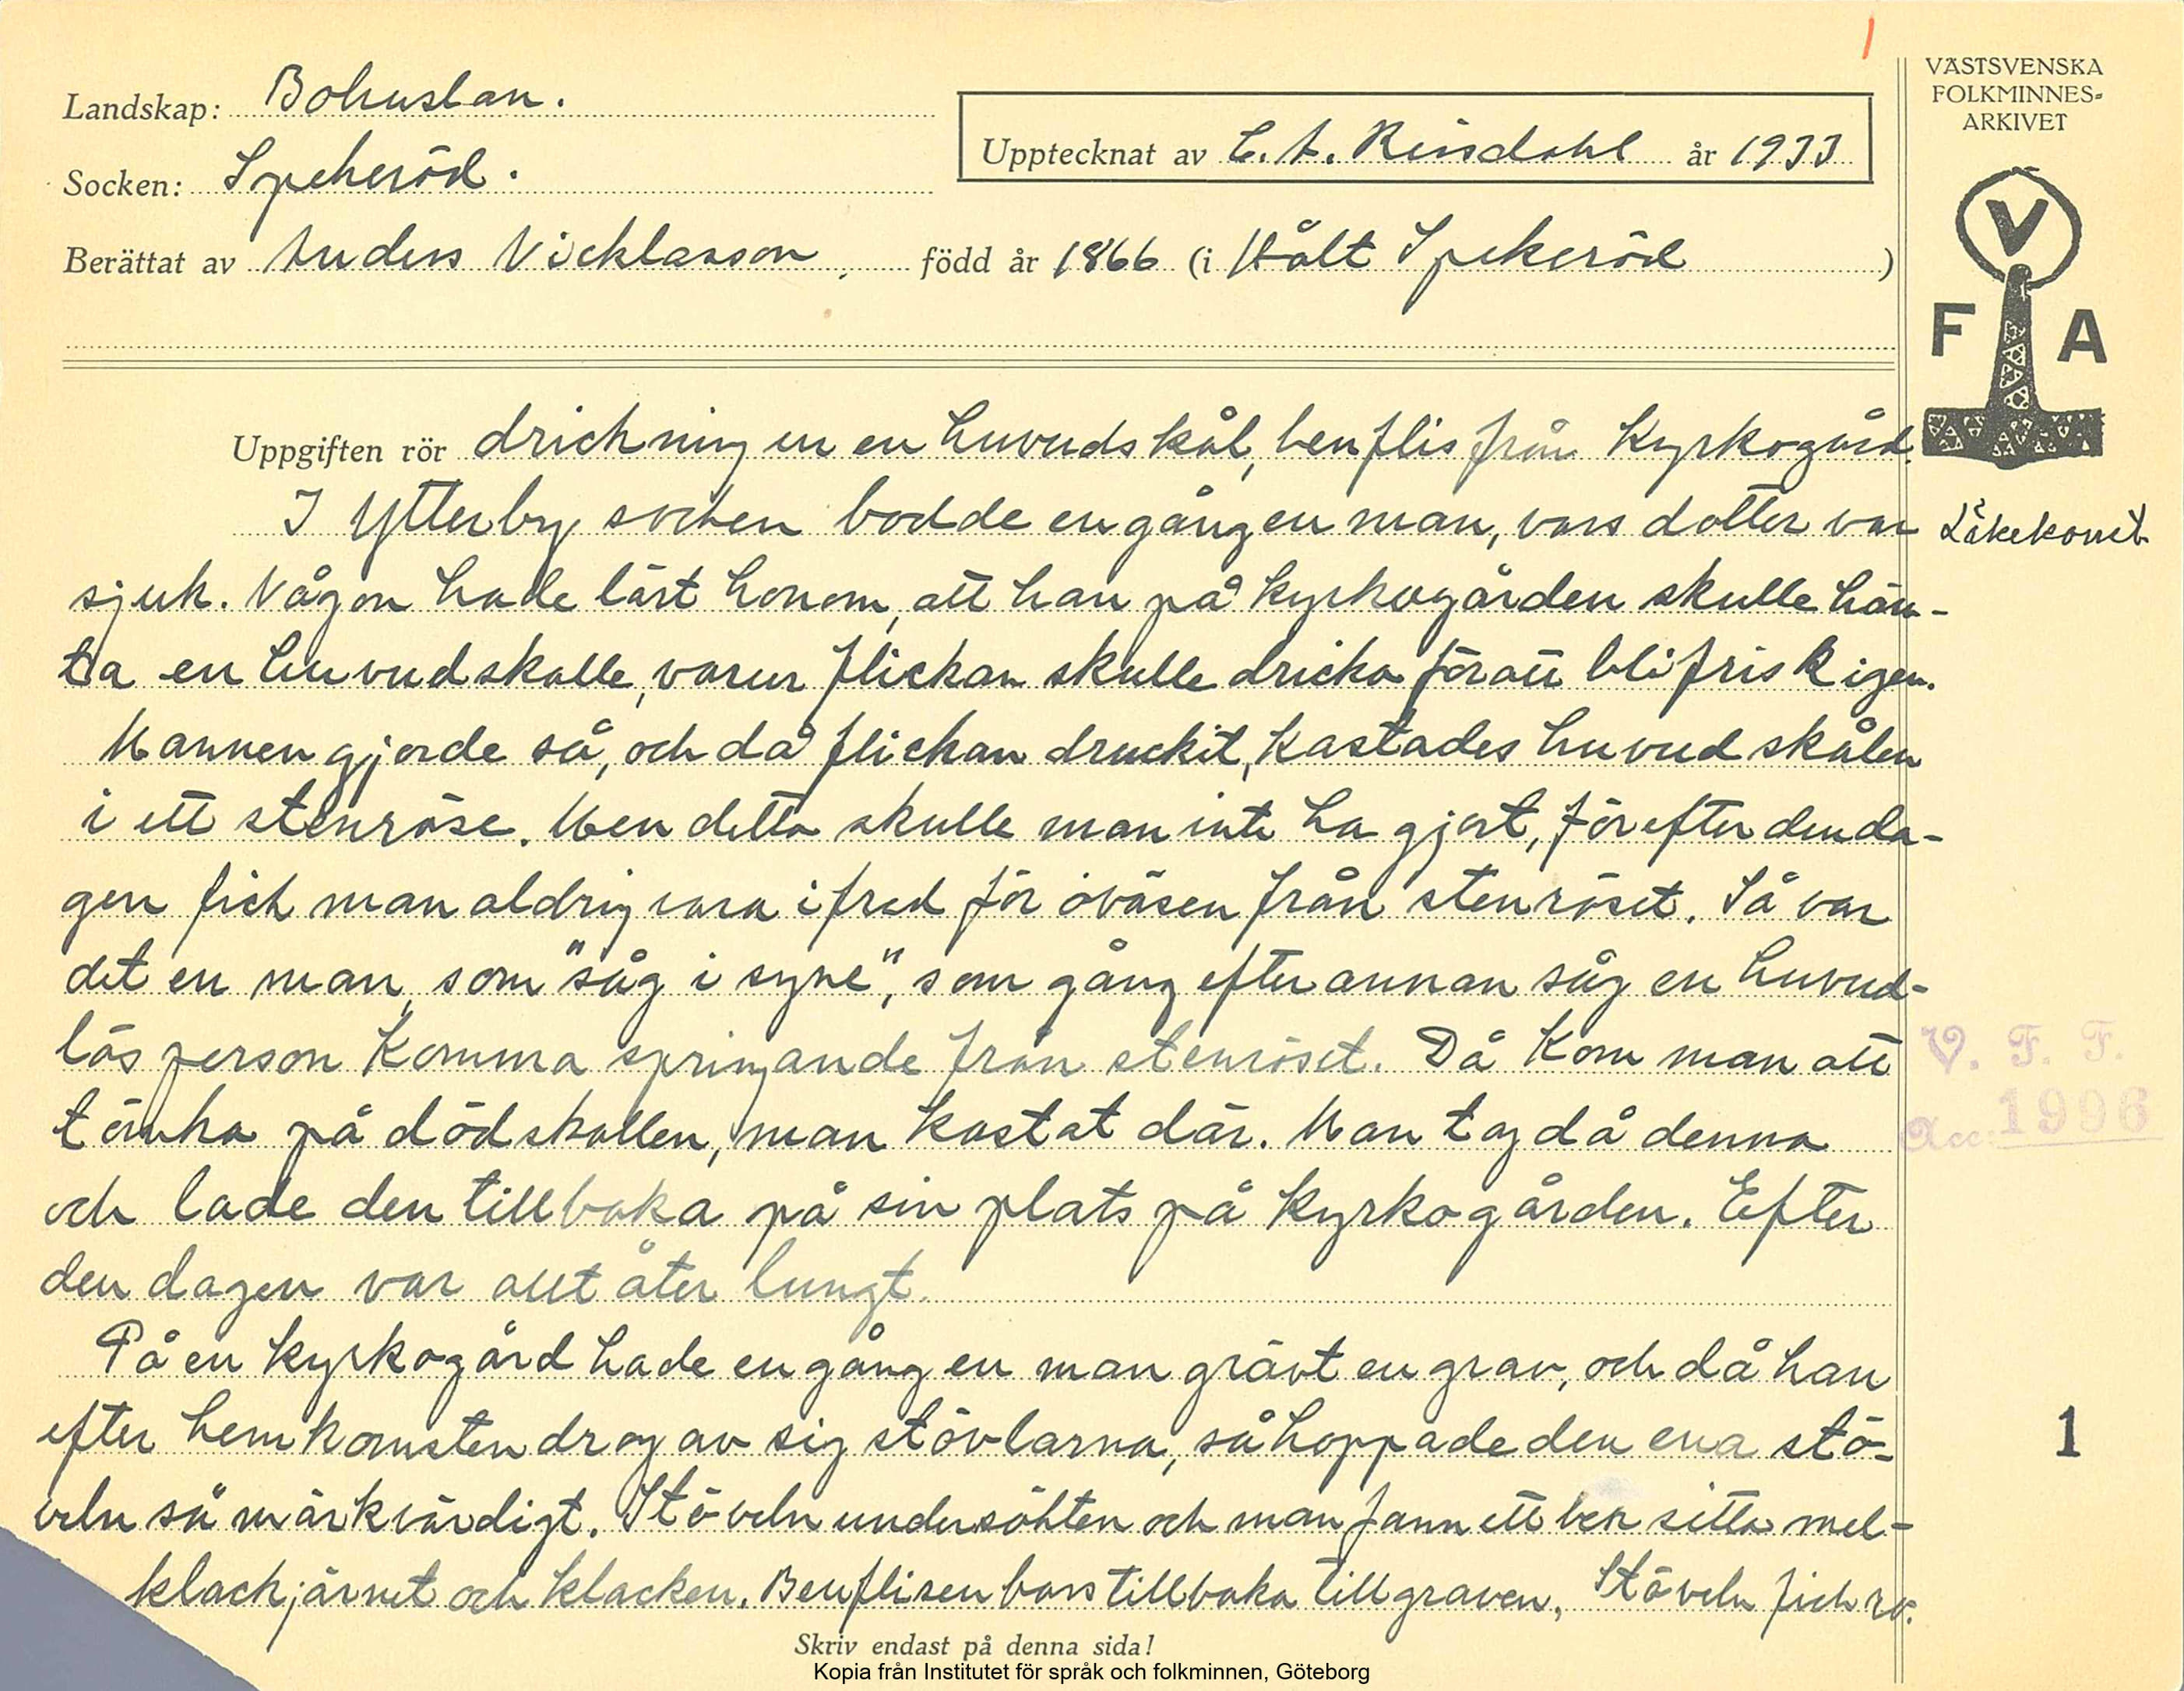 VÄSTSVENSKA
FOLKMINNES-
ARKIVET
Landskap: Bohuslän.
Upptecknat av C. A. Rinsdahl år 1933
Socken: Spekeröd.
Berättat av Anders Nicklasson, född år 1866 (i Hält Spekeröd)
V
F A
Uppgiften rör drickning ur en huvudskål, benflis från kyrkogård.
I Ytterby socken bodde en gång en man, vars dotter var
Läkekonst
sjuk. Någon hade lärt honom, att han på kyrkogården skulle häm-
ta en huvudskalle, varur flickan skulle dricka för att bli frisk igen.
Mannen gjorde så, och då flickan druckit, kastades huvudskålen
i ett stenröse. Men detta skulle man inte ha gjort, för efter den da-
gen fick man aldrig vara i fred för oväsen från stenröset. Så var
det en man, som "såg i syne", som gång efter annan såg en huvud-
lös person komma springande från stenröset. Då kom man att
tänka på dödskallen, man kastat där. Man tog då denna
och lade den tillbaka på sin plats på kyrkogården. Efter
den dagen var allt åter lungt.
V. F. F.
Acc: 1996
På en kyrkogård hade en gång en man grävt en grav, och då han
efter hemkomsten drog av sig stövlarna, så hoppade den ena stö-
veln så märkvärdigt. Stöveln undersökten och man fann ett ben sitta mel-
klackjärnet och klacken. Benflisen bars tillbaka till graven, Stöveln fick ro.
1
Skriv endast på denna sida!
Kopia från Institutet för språk och folkminnen, Göteborg